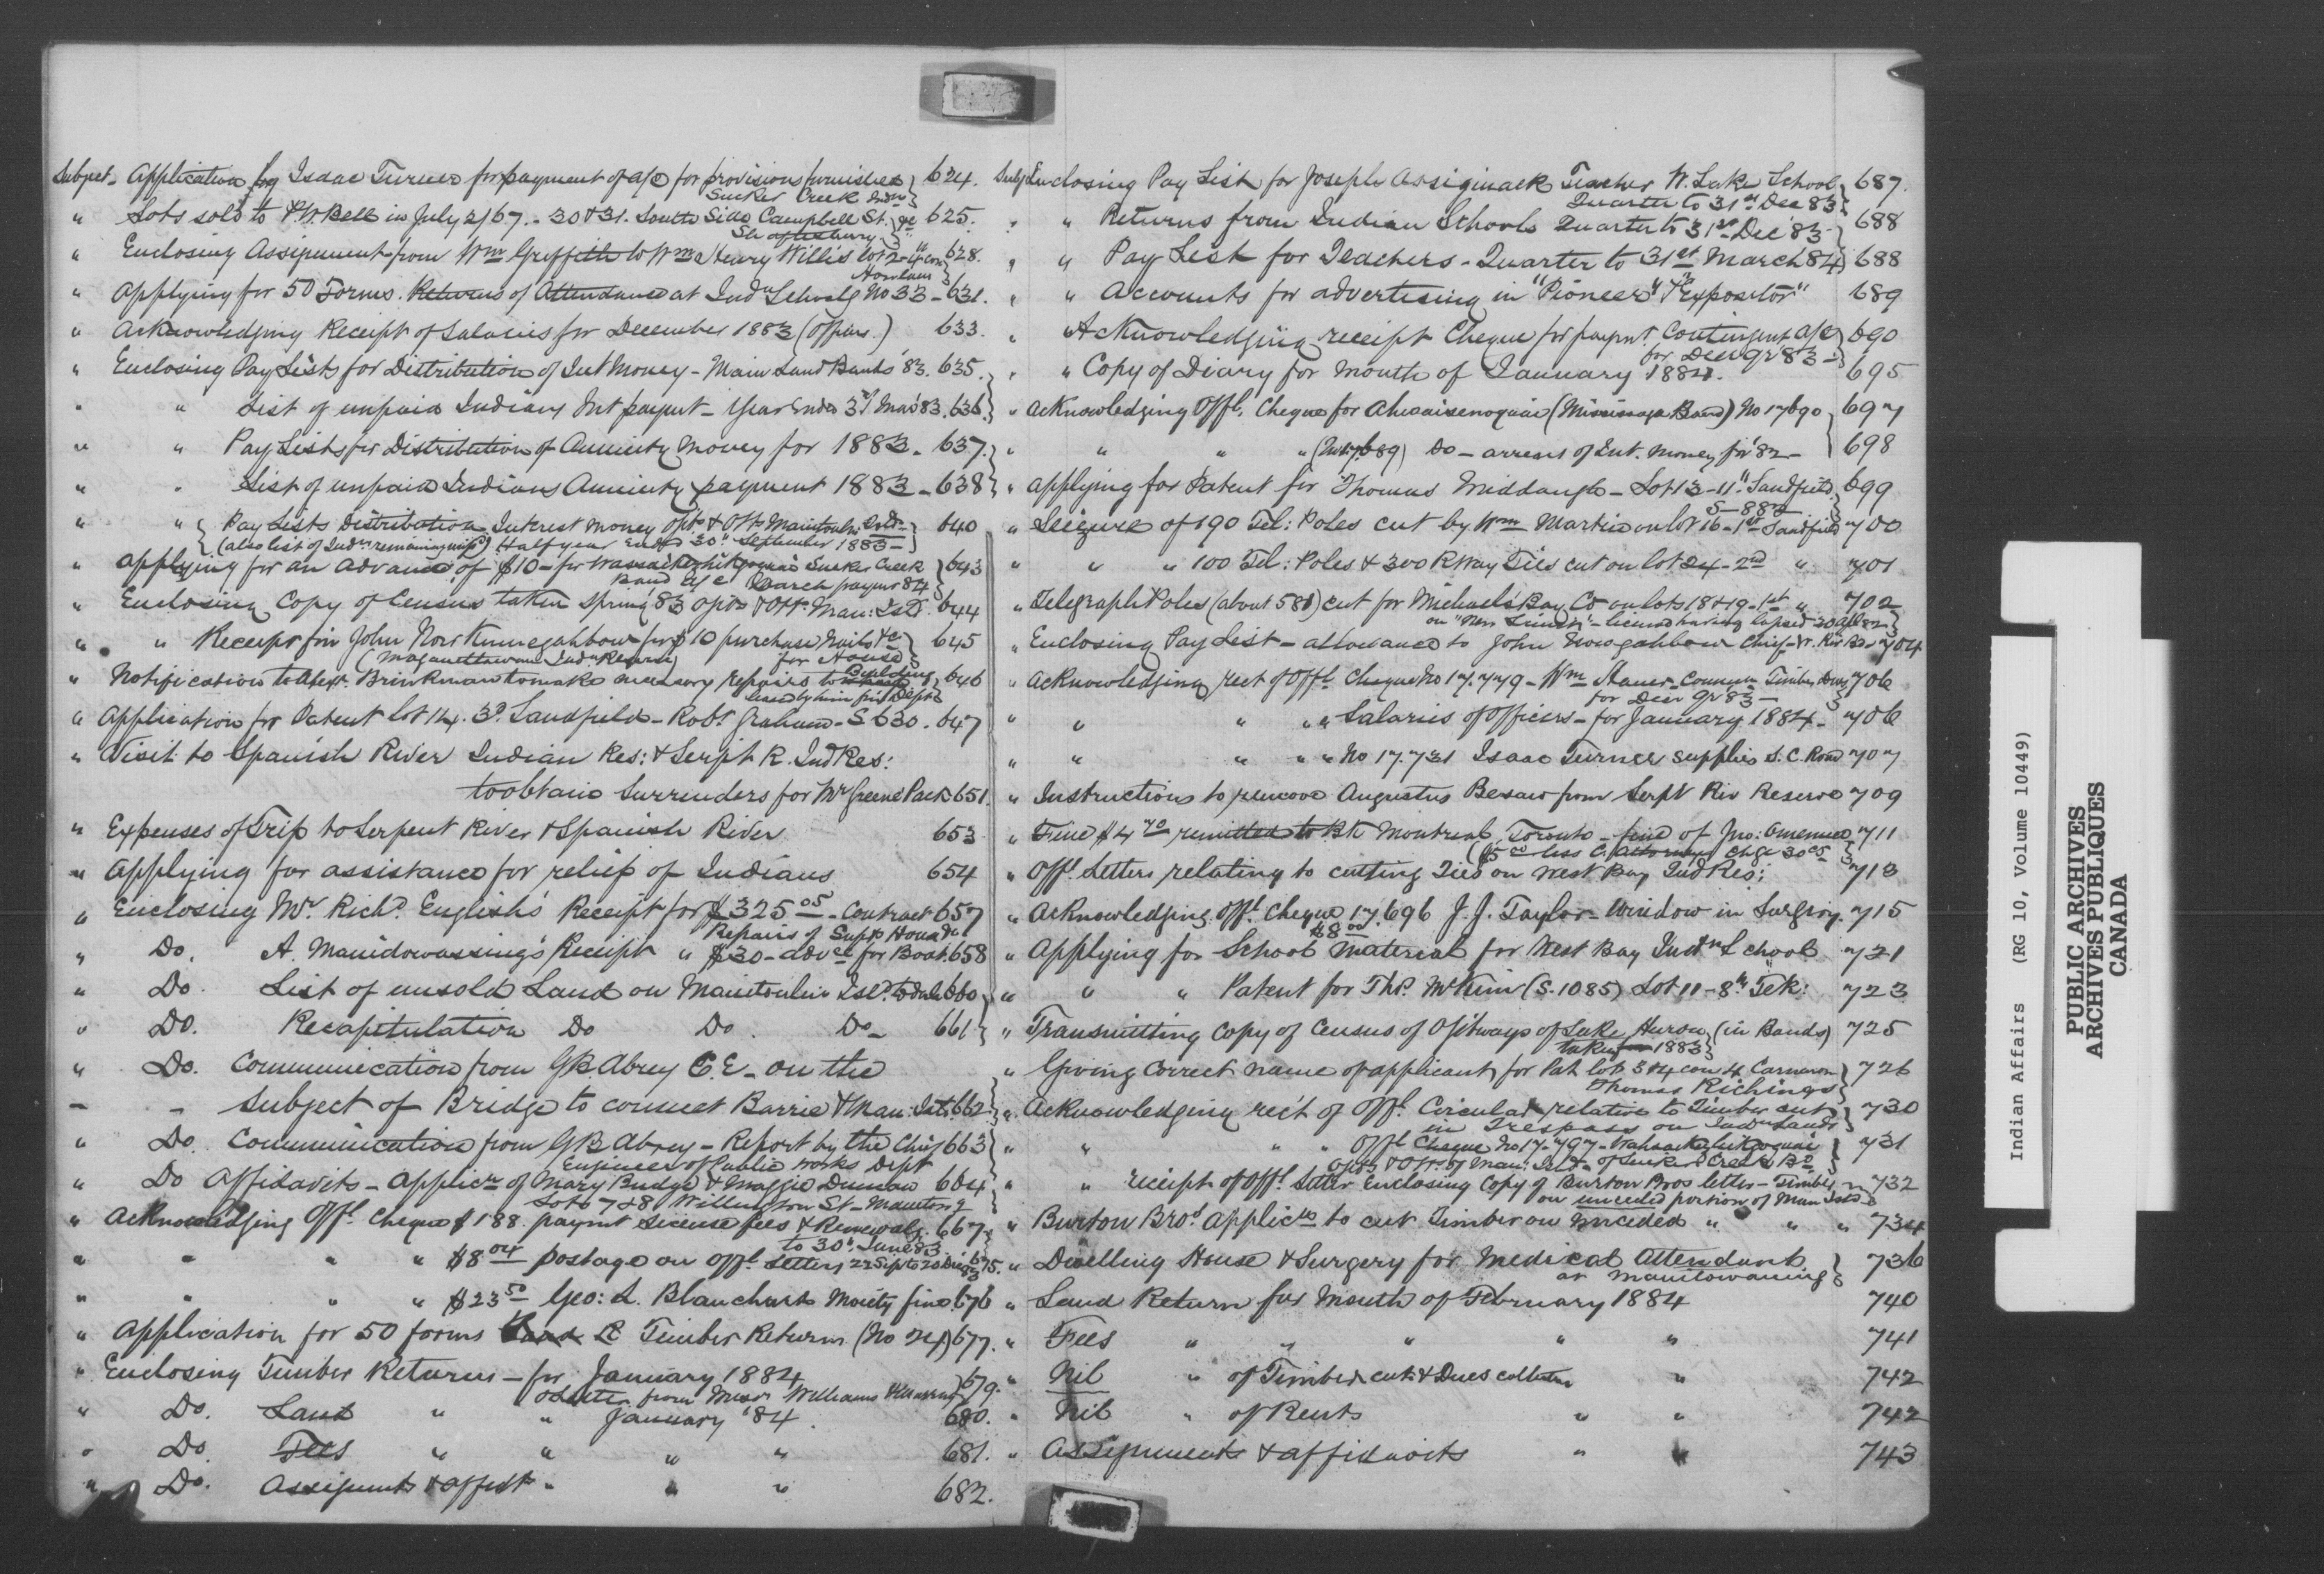 Subject - Application for Isaac Turner for payment of a/c for provisions furnished 624.
Sucker Creek Inds
" Lots sold to P.W. Bell in July 2/67. - 30 & 31. South Side Campbell St. 625.
Shaftesbury
" Enclosing Assignment from Wm Griffith to Wm Henry Willis lot 2 - 4th con 628.
Howland
" Applying for 50 Forms. Returns of Attendance at Indn Schools No 33 - 631.
" Acknowledging Receipt of Salaries for December 1883 (Officers) 633.
" Enclosing Pay Lists for Distribution of Int Money - Main Land Bands '83. 635.
" " List of unpaid Indians Int paymt - Year Ended 31 Mar '83. 636.
" " Pay Lists for Distribution of Annuity Money for 1883 - 637.
" " List of unpaid Indians Annuity payment 1883 - 638
" " Pay Lists Distribution Interest money Opts & Otts Manitoulin Isld - 640
(also list of Inds remaining unpd) Half year Ended 30th September 1883 -
" Applying for an Advance of $10 - for Sucker Creek 643
Band a/c March paymt 84
" Enclosing Copy of Census taken Spring '83 Opts & Otts Man: Isd. 644
" " Receipt from John Now Kummegahbow for $10 purchase Nails &c 645
(Magannettawan Ind. Reserve) for House
" Notification to Alexr. Brinkman to make necessary repairs to Building 646
leased by him from Dept
" Application for Patent lot 14. 3d. Sandfield - Robt Graham - S 630 - 647
" Visit to Spanish River Indian Res: & Serpt R. Ind Res:
to obtain Surrenders for Mr Greene Pack 651.
" Expenses of Trip to Serpent River & Spanish River 653
" Applying for assistance for relief of Indians 654
" Enclosing Mr Richd English's Receipt for $325 05 - Contract 657
Repairs of Supts House &c
" Do. A. Manidowassing's Receipt " $30 - advce for Boat 658
" Do. List of unsold Land on Manitoulin Isd. to date 660
" Do. Recapitulation Do Do. Do - 661
" Do. Communication from G B Abrey C.E - on the
- - Subject of Bridge to connect Barrie & Man: Isds. 662
" Do. Communication from G B Abrey - Report by the Chief 663
Engineer of Public Works Dept
" Do Affidavits - Applicn of Mary Budge & Maggie Duncan 664
Lots 7 & 8 Wellington St - Manitog
" Acknowledging Offl. Cheque $188. paymt License fees & Renewals. 667
to 30th June 83
" " " " $8 04 postage on Offl Letters 22 Sept to 20 Dec 83 675.
" " " " $23 50 Geo: L. Blanchard Moiety fine 676
" Application for 50 forms R Timber Returns (No 24) 677.
" Enclosing Timber Returns - for January 1884 679.
& Letter from Messr Williams & Murray
" Do. Land " " January '84. 680.
" Do. Fees " " " " 681.
" Do. Assignmts & affidts " " " 682.
Subj Enclosing Pay List for Joseph Assiginack Teacher W. Lake School 687.
Quarter to 31st Dec 83
" " Returns from Indian Schools Quarter to 31st Dec '83 - 688
" " Pay List for Teachers - Quarter to 31st March '84 688
" " Accounts for advertising in "Pioneer" & "Expositor" 689
" Acknowledging receipt Cheque for paymt Contingent a/c 690
for Decr Qr '83 -
" " Copy of Diary for Month of January 1884. 695
" Acknowledging Offl. Cheque for (Mississaga Band) No 17690 697
" " " " (No 17.689) Do - arrears of Int. Money for '82 - 698
" Applying for Patent for Thomas Middaugh - Lot 13 - 11th Sandfield 699
S - 882
" Seizure of 190 Tel: Poles cut by Wm Martin on lot 16 - 1st Sandfield 700
" " " 100 Tel: Poles & 300 R Way Ties cut on lot 24 - 2nd " 701
" Telegraph Poles (about 581) cut for Michaels Bay Co on lots 18 & 19 - 1st " 702
licence having lapsed 30 Apl 82
" Enclosing Pay List - allowance to John Nowgahbow Chief - W. Riv Bd - 704
" Acknowledging rect of Offl Cheque No 17.779 - Wm 706
for Decr Qr 83 -
" " " " " Salaries of Officers - for January 1884 - 706
" " " " " No 17.731 Isaac Turner supplies S.C. Road 707
" Instructions to remove Augustus Besaw from Serpt Riv Reserve 709
" Fine $4 70 remitted to Bk Montreal, Toronto - fine of Jno: 711
($5 00 less C. Attorneys chge 30 cs
" Offl Letters relating to cutting Ties on West Bay Ind Res: 713
" Acknowledging Offl. Cheque 17.696 J.J. Taylor - Window in Surgery. 715
$8 00
" Applying for School Material for West Bay Indn School 721
" " " Patent for Thos. McKim (S. 1085) Lot 11 - 8th Tek: 723
" Transmitting Copy of Census of Ojibways of Lake Huron (in Bands) 725
taken 1883
" Giving Correct name of applicant for Pat lots 3 & 4 con 4 Carnarvon 726
Thomas Richings
" Acknowledging rec't of Offl Circular relative to Timber cut 730
in Trespass on Indn Lands
" " " " Offl Cheque No 17.797 - 731
Opts & Otts of Man: Isld - of Sucker Creek Bd
" " receipt of Offl Letter Enclosing Copy of Burton Bros letter - Timber 732
on unceded portion of Man Isld
" Burton Bros Applicn to cut Timber on unceded " " " 734
" Dwelling House & Surgery for Medical Attendant 736
at Manitowaning
" Land Return for Month of February 1884 740
" Fees " " " " " 741
" Nil " of Timber cut & Dues collected " 742
" Nil " of Rents " " 742
" Assignments & affidavits " " 743
Indian Affairs (RG 10, Volume 10449)
PUBLIC ARCHIVES
ARCHIVES PUBLIQUES
CANADA